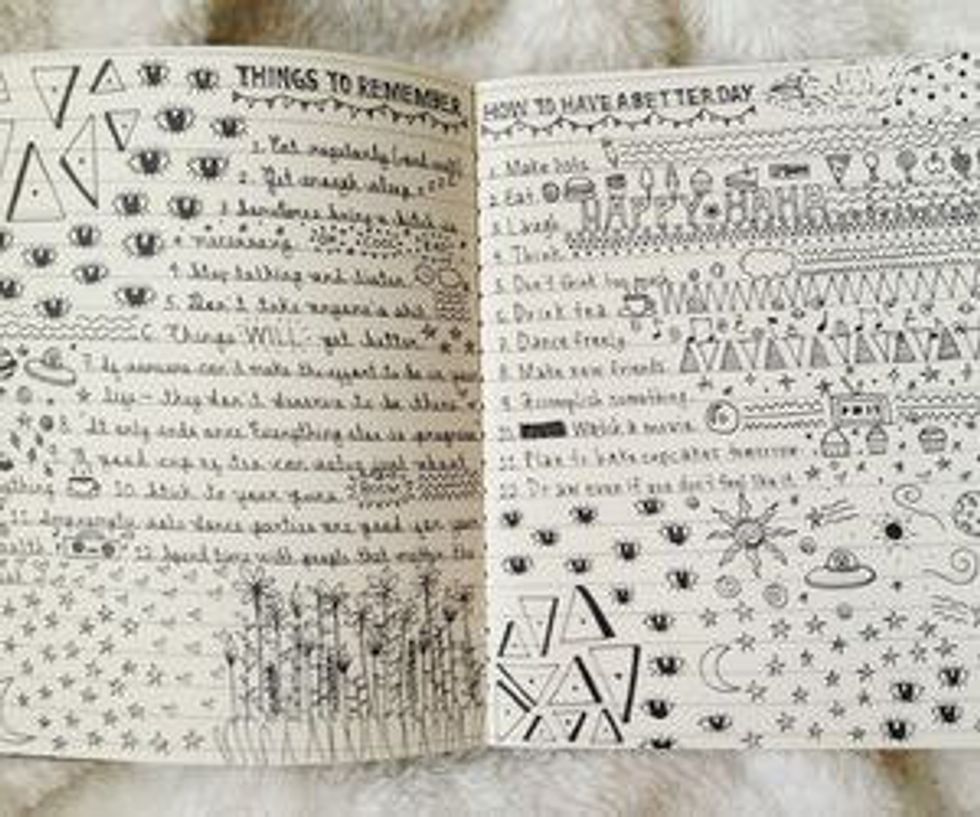 THINGS TO REMEMBER
1. Eat regularly (and well)
2. Get enough sleep
3. Sometimes being a bitch is
necessary
4. Stop talking and listen
5. Don't take anyone's shit
6. Things "WILL" get better
7. If someone can't make the effort to be in your
life - they don't deserve to be there
8. It only ends once. Everything else is progress
9. A good cup of tea can
10. Stick to your guns
11. Impromptu solo dance parties are good for your
health
12. Spend time with people that matter the
HOW TO HAVE A BETTER DAY
1. Make lists
2. Eat
3. Laugh
HAPPY HAHA
4. Think
5. Don't think too much
6. Drink tea
7. Dance freely
8. Make new friends
9. Accomplish something
10. Watch a movie
11. Plan to bake cupcakes tomorrow
12. Draw even if you don't feel like it